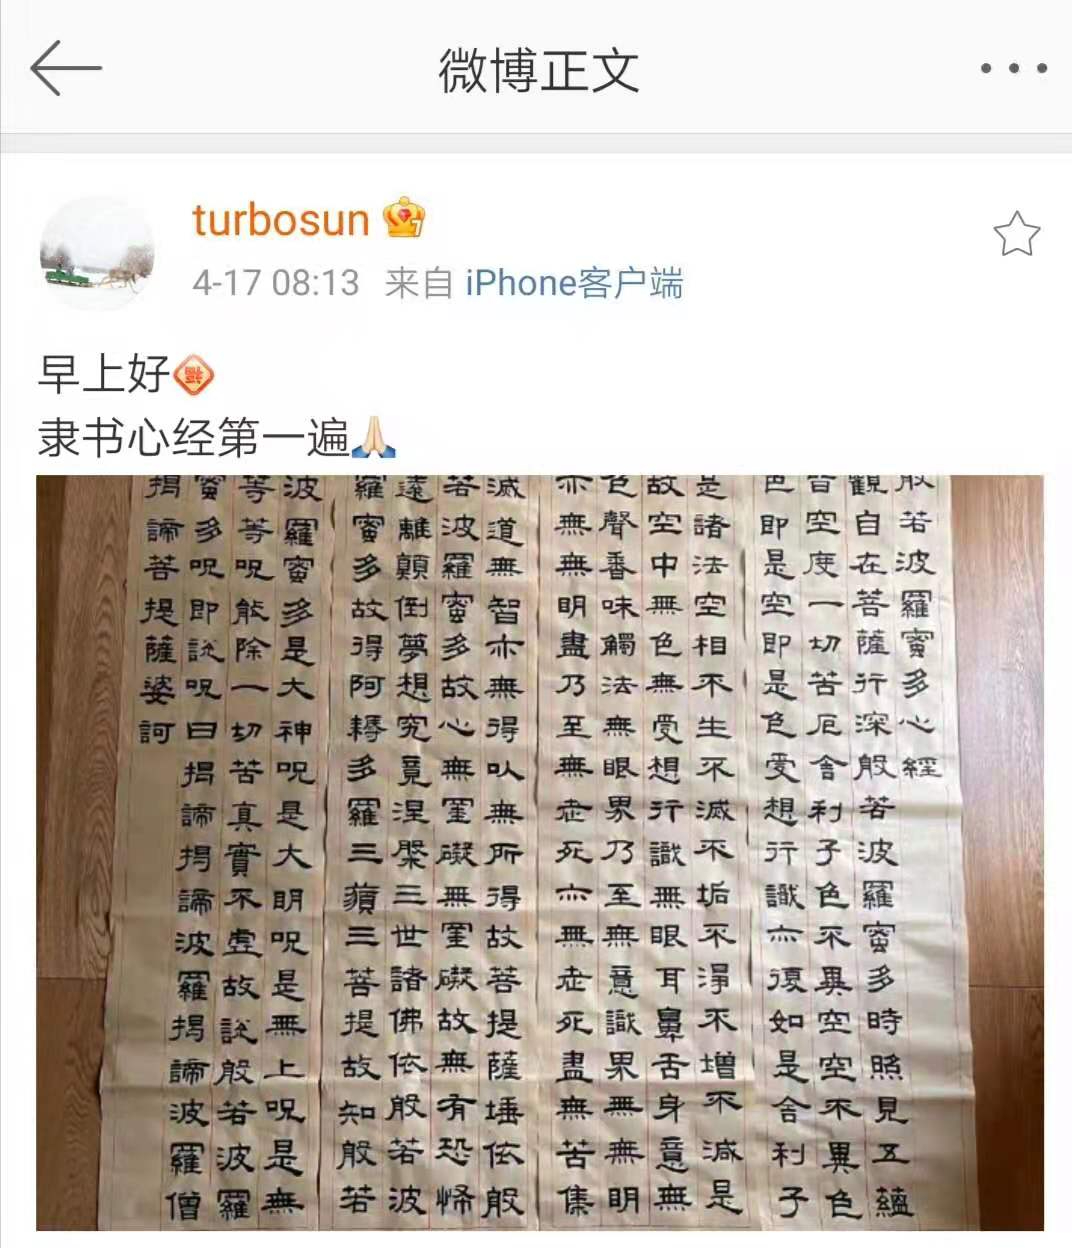 微博正文
turbosun
4-17 08:13 来自 iPhone客户端
早上好
隶书心经第一遍
般若波羅蜜多心經
觀自在菩薩行深般若波羅蜜多時照見五蘊
皆空度一切苦厄舍利子色不異空空不異色
色即是空即是色受想行識亦復如是舍利子
是諸法空相不生不滅不垢不淨不增不減是
故空中無色無受想行識無眼耳鼻舌身意無
色聲香味觸法無眼界乃至無意識界無無明
亦無無明盡乃至無老死亦無老死盡無苦集
滅道無智亦無得以無所得故菩提薩埵依般
若波羅蜜多故心無罣礙無罣礙故無有恐怖
遠離顛倒夢想究竟涅槃三世諸佛依般若波
羅蜜多故得阿耨多羅三藐三菩提故知般若
波羅蜜多是大神呪是大明呪是無上呪是無
等等呪能除一切苦真實不虛故說般若波羅
蜜多呪即說呪曰揭諦揭諦波羅揭諦波羅僧
揭諦菩提薩婆訶